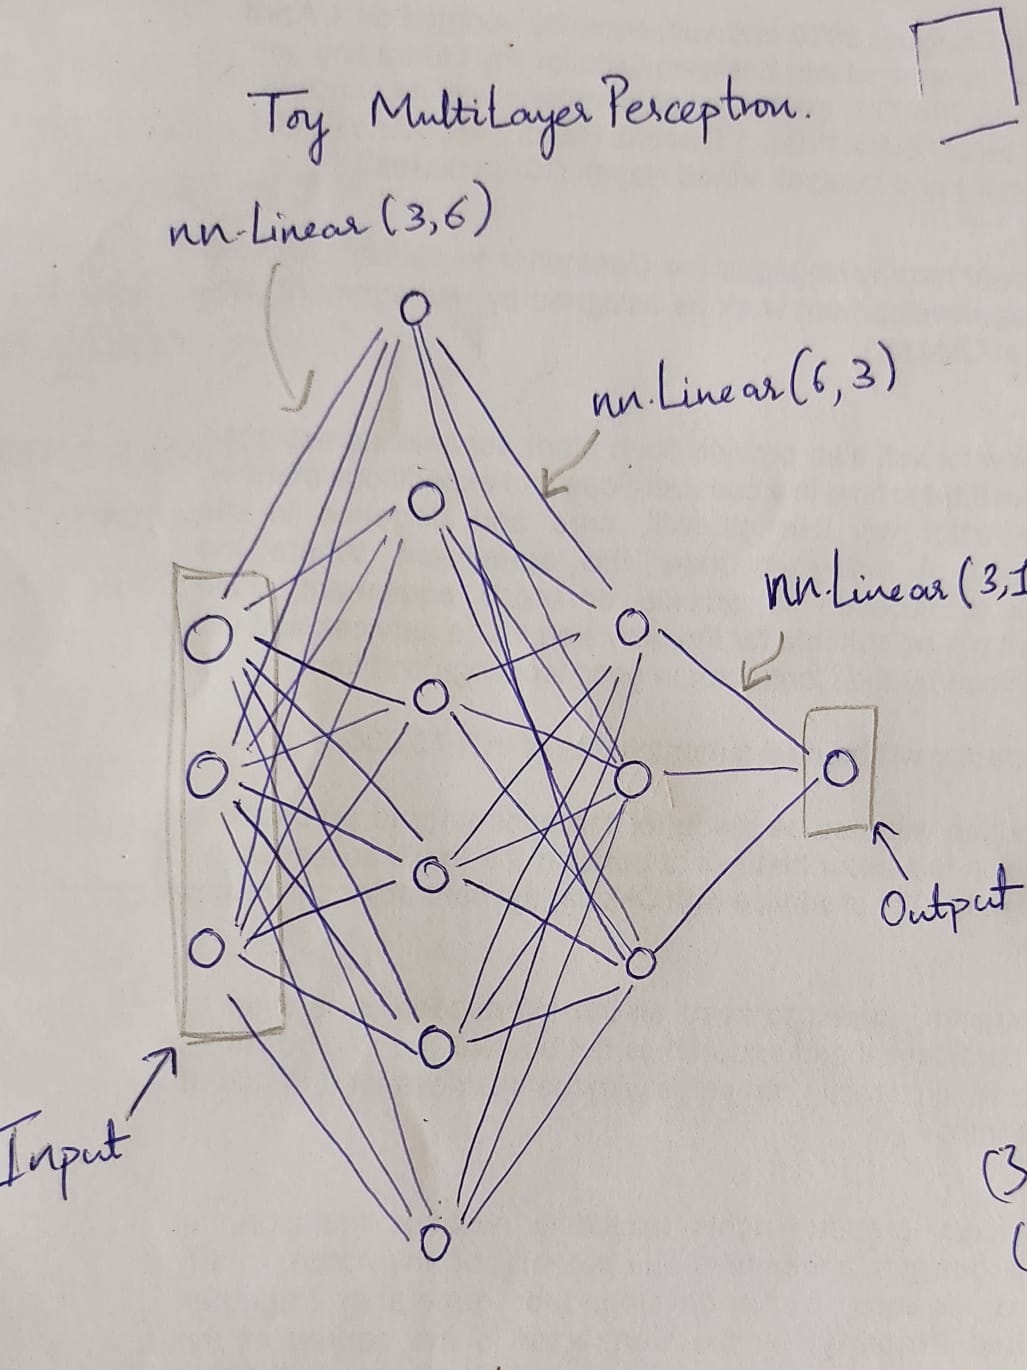 Toy MultiLayer Perceptron.
nn.Linear (3,6)
nn.Linear (6,3)
nn.Linear (3,1
Output
Input
(3
(